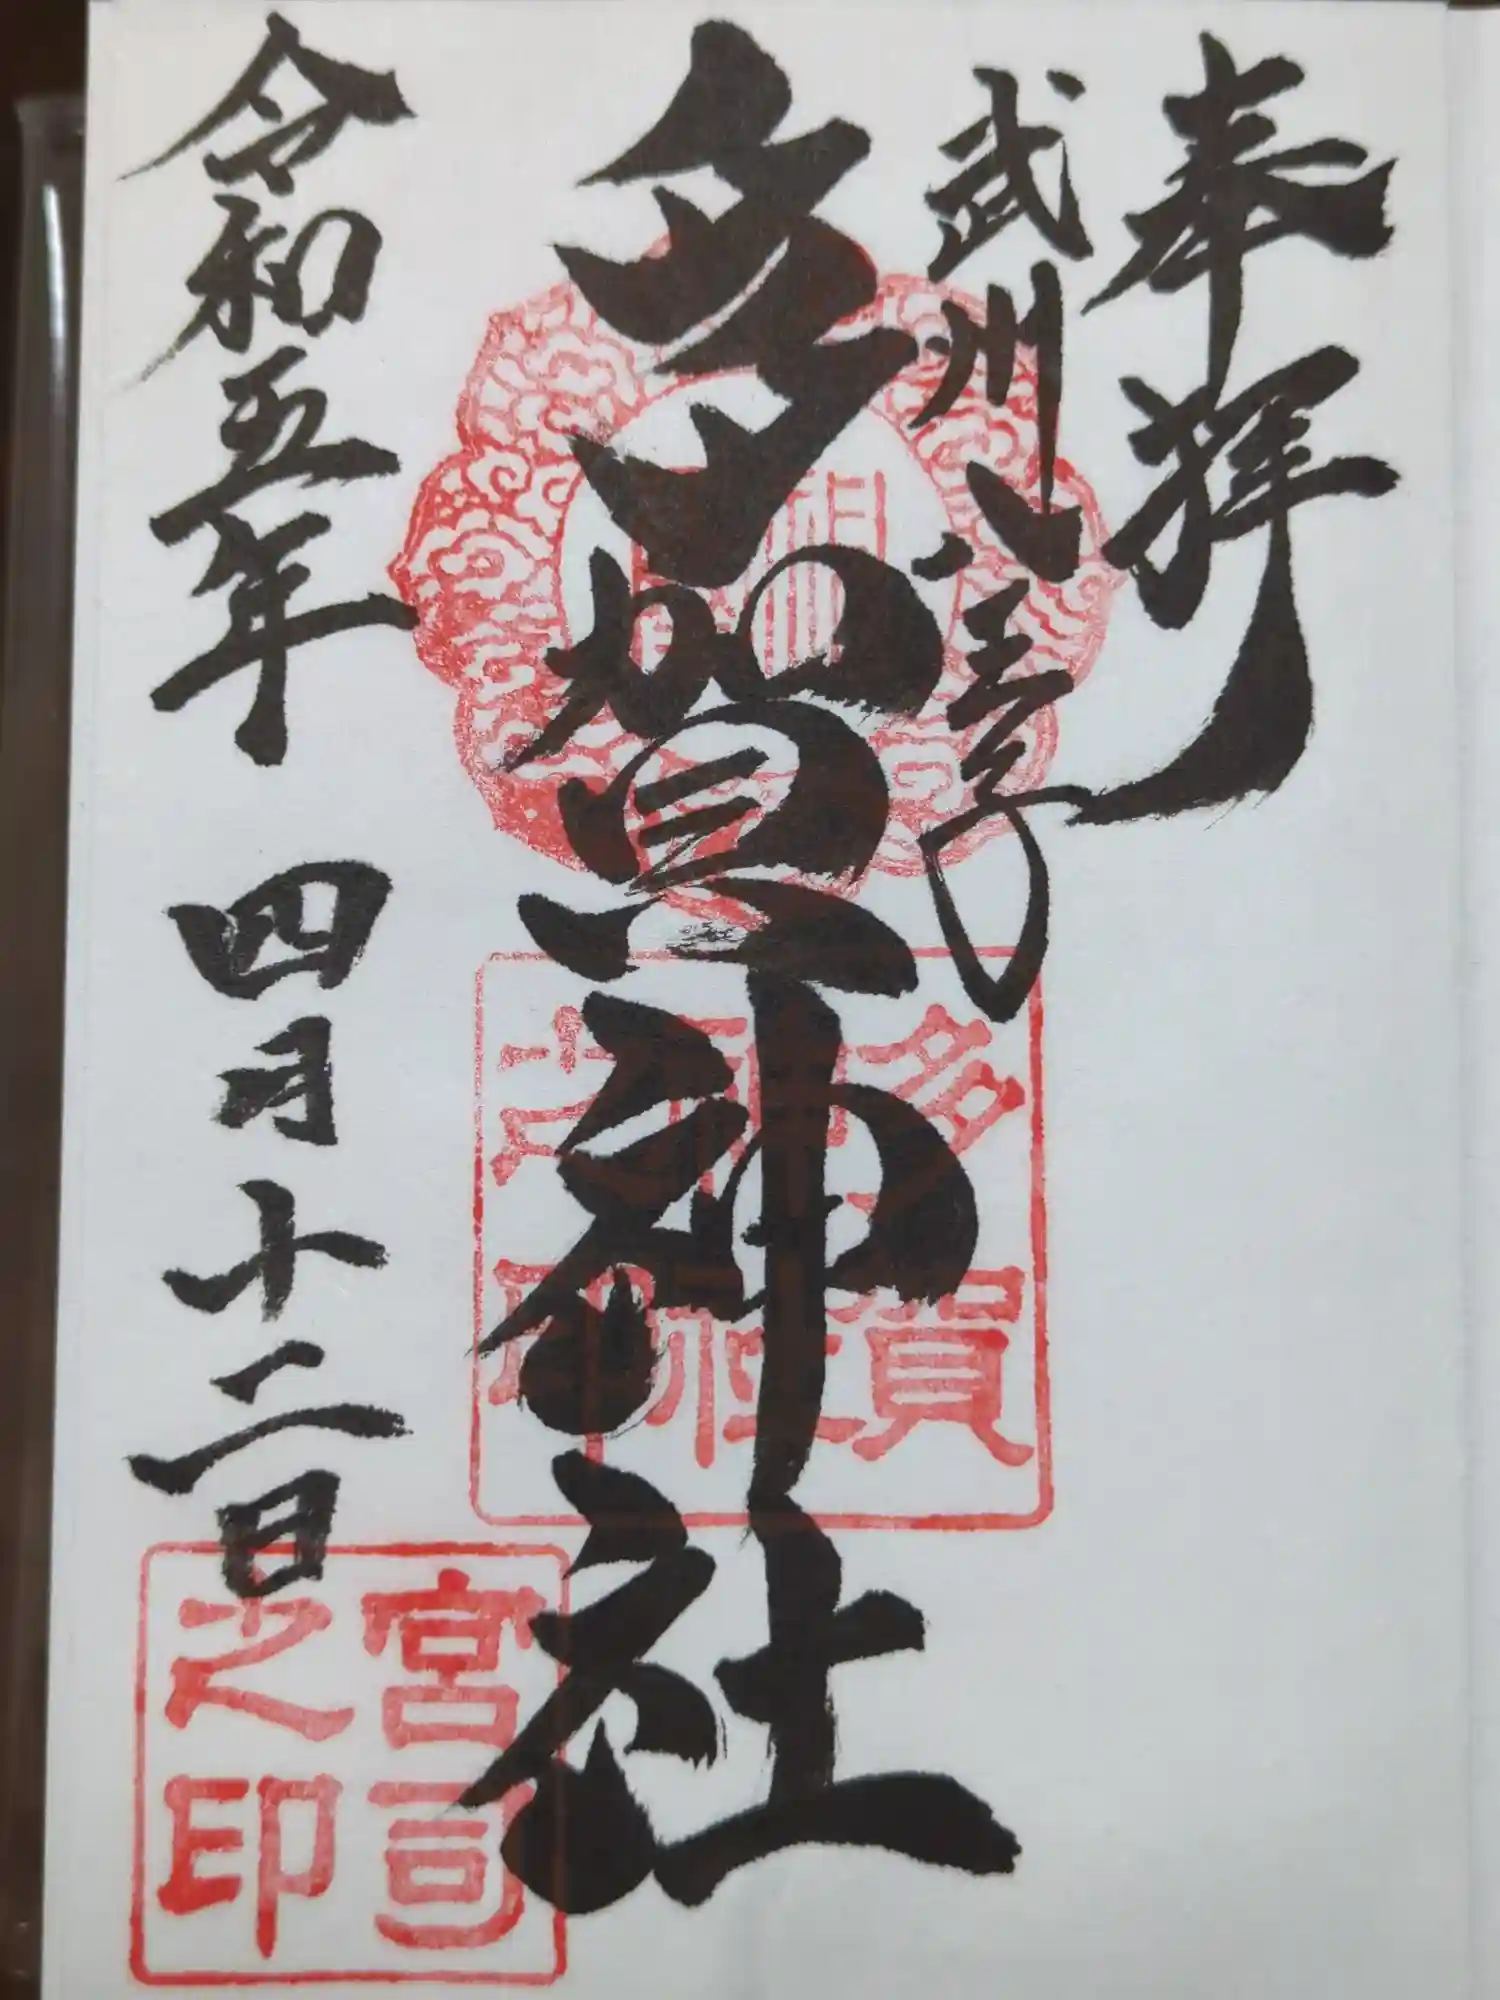 奉拝
武州八王子
多賀神社
令和五年 四月十二日
多賀
神社
之印
宮司
之印